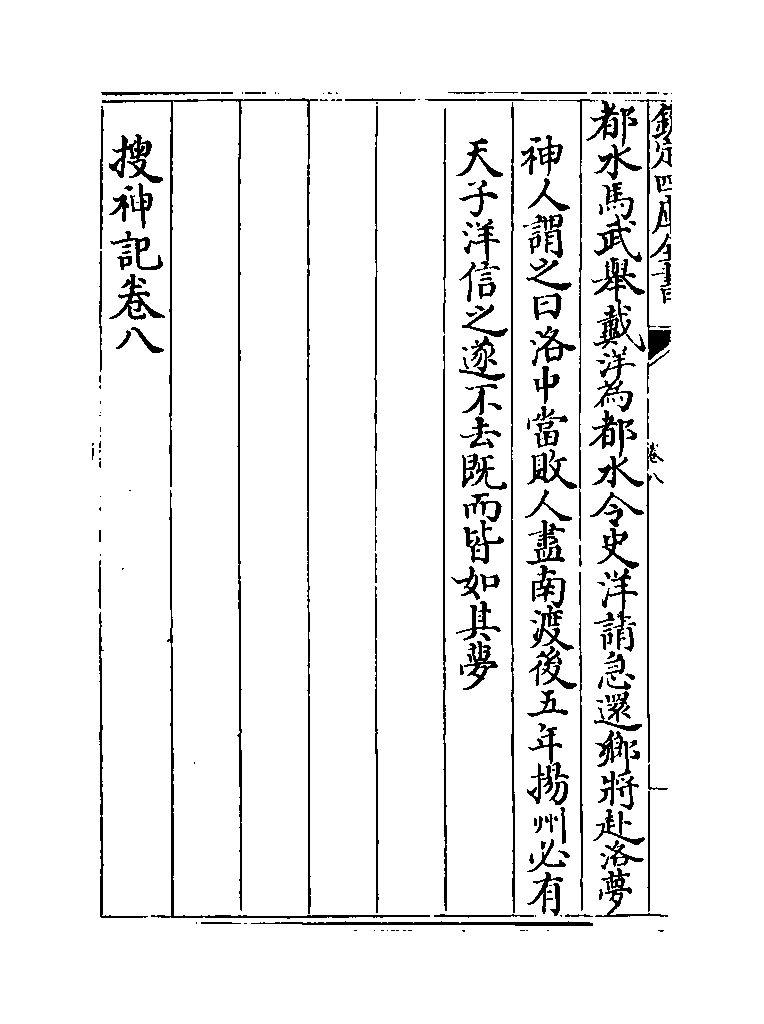 欽定四庫全書
卷八
都水馬武舉戴洋為都水令史洋請急還鄉將赴洛夢
神人謂之曰洛中當敗人盡南渡後五年揚州必有
天子洋信之遂不去既而皆如其夢
搜神記卷八